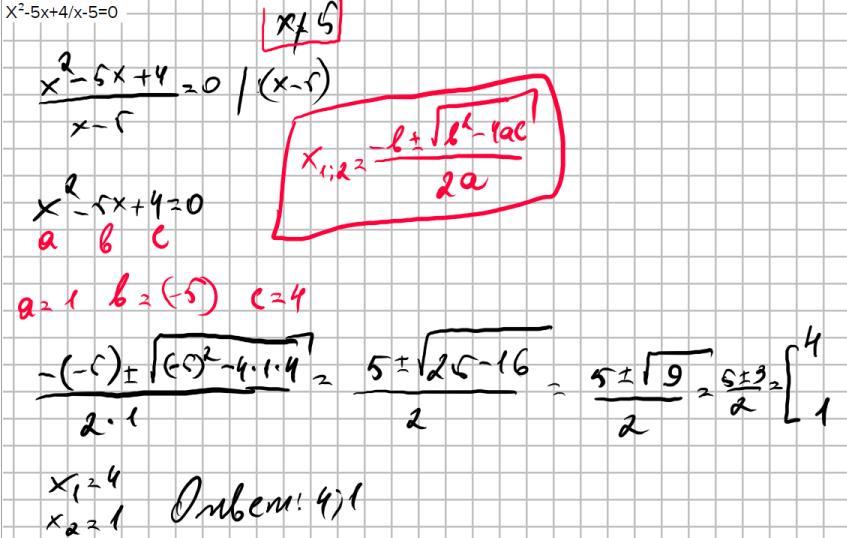 X²-5x+4/x-5=0
x≠5
x²-5x+4/x-5=0 | (x-5)
x₁;₂=-b±√b²-4ac/2a
x²-5x+4=0
a b c
a=1 b=(-5) c=4
-(-5)±√(-5)²-4·1·4/2·1=5±√25-16/2=5±√9/2=5±3/2=[4 1
x₁=4
x₂=1 Ответ: 4;1